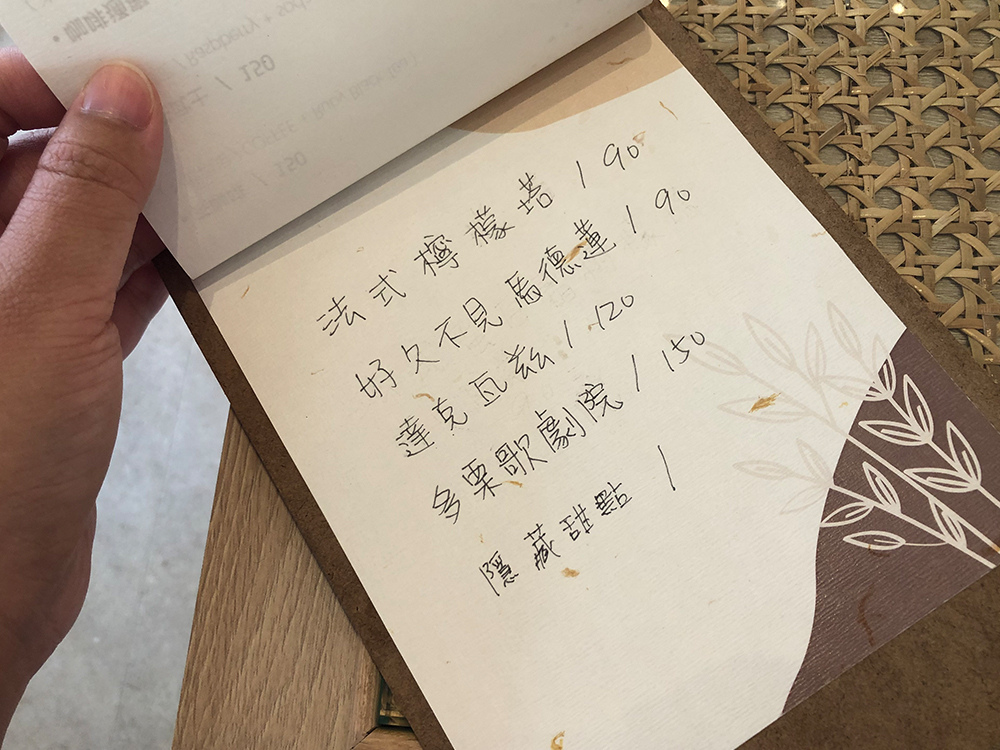 法式檸檬塔 / 90
好久不見馬德蓮 / 90
達克瓦茲 / 120
多栗歌劇院 / 150
隱藏甜點 /